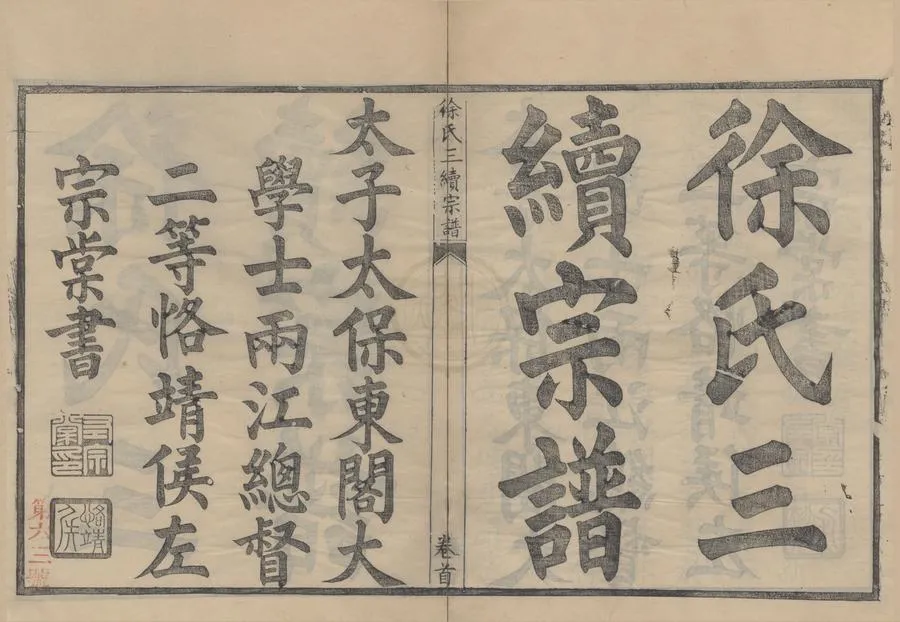 徐氏三
續宗譜
徐氏三續宗譜
卷首
太子太保東閣大
學士兩江總督
二等恪靖侯左
宗棠書
左宗棠印
恪靖侯
第六三號